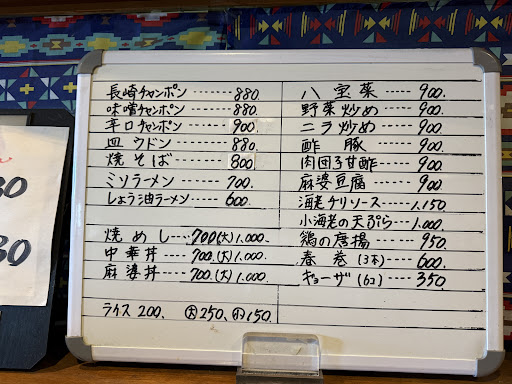 長崎チャンポン……880
味噌チャンポン……880.
辛口チャンポン……900
皿ウドン……880.
焼そば……800
ミソラーメン……700.
しょう油ラーメン……600.
焼めし…700(大)1.000.
中華丼…700.(大)1.000.
麻婆丼…700.(大)1.000.
ライス200. 大250. 小150.
八宝菜……900.
野菜炒め……900.
ニラ炒め……900.
酢豚……900.
肉団子甘酢……900.
麻婆豆腐……900.
海老チリソース……1.150
小海老の天ぷら…1.000.
鶏の唐揚……950
春巻(3本)……600.
ギョーザ(6コ)……350
30
30